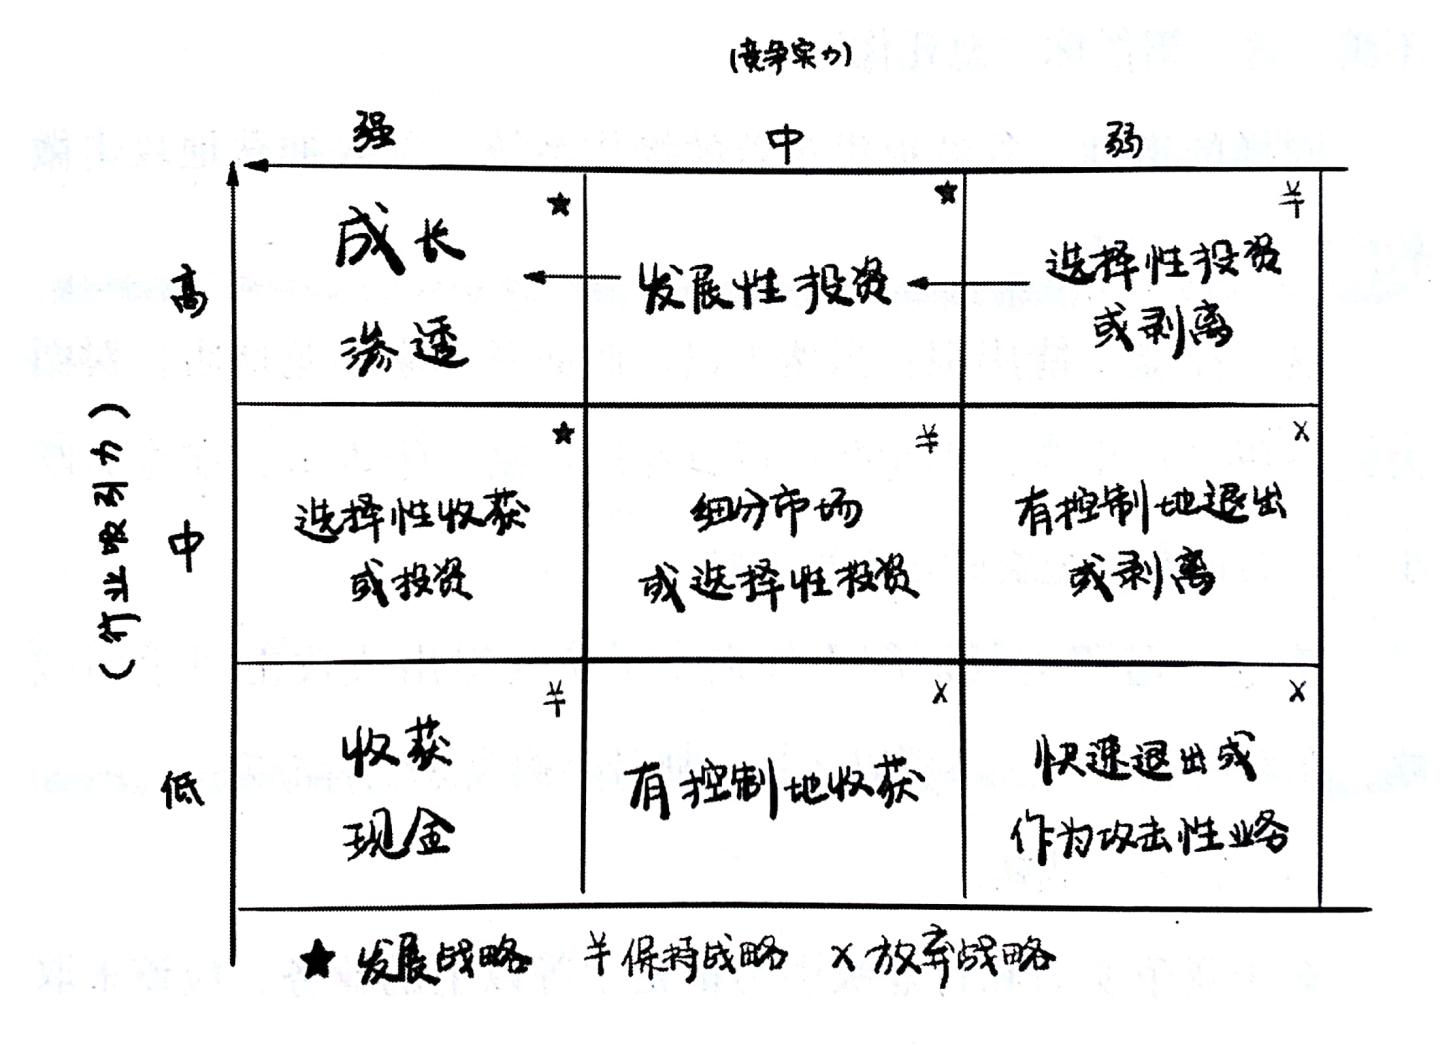 (竞争实力)
强 中 弱
★ ★ ¥
成长
渗透
发展性投资
选择性投资
或剥离
高
★ ¥ x
选择性收获
或投资
细分市场
或选择性投资
有控制地退出
或剥离
中
(行业吸引力)
¥ x x
收获
现金
有控制地收获
快速退出或
作为攻击性业务
低
★ 发展战略 ¥ 保持战略 x 放弃战略